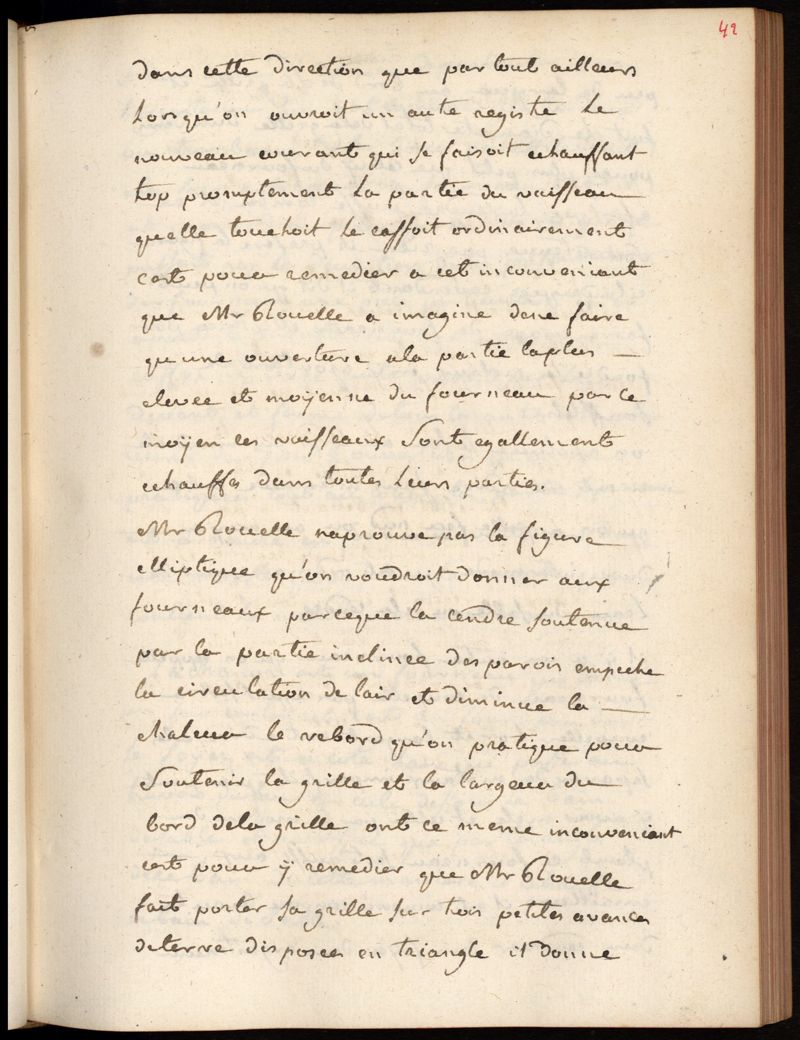 42
dans cette direction que partout ailleurs
Lorsqu'on ouvroit un autre registe Le
nouveau courant qui se faisoit echauffant
trop promptement La partie du vaisseau
quelle touchoit Le cassoit ordinairement
cest pour remedier a cet inconveniant
que Mr Rouelle a imagine dene faire
qu une ouverture ala partie laplus —
elevee et moÿenne du fourneau par ce
moÿen les vaisseaux sont egallement
echauffés dans toutes Leurs parties.
Mr Rouelle naprouve pas la figure
elliptique qu'on voudroit donner aux
fourneaux parceque la cendre soutenue
par la partie inclinee des parois empeche
la circulation de lair et diminue la —
chaleur le rebord qu'on pratique pour
soutenir la grille et la largeur du
bord dela grille ont ce meme inconveniant
cest pour ÿ remedier que Mr Rouelle
fait porter sa grille sur trois petites avances
deterre disposées en triangle il donne